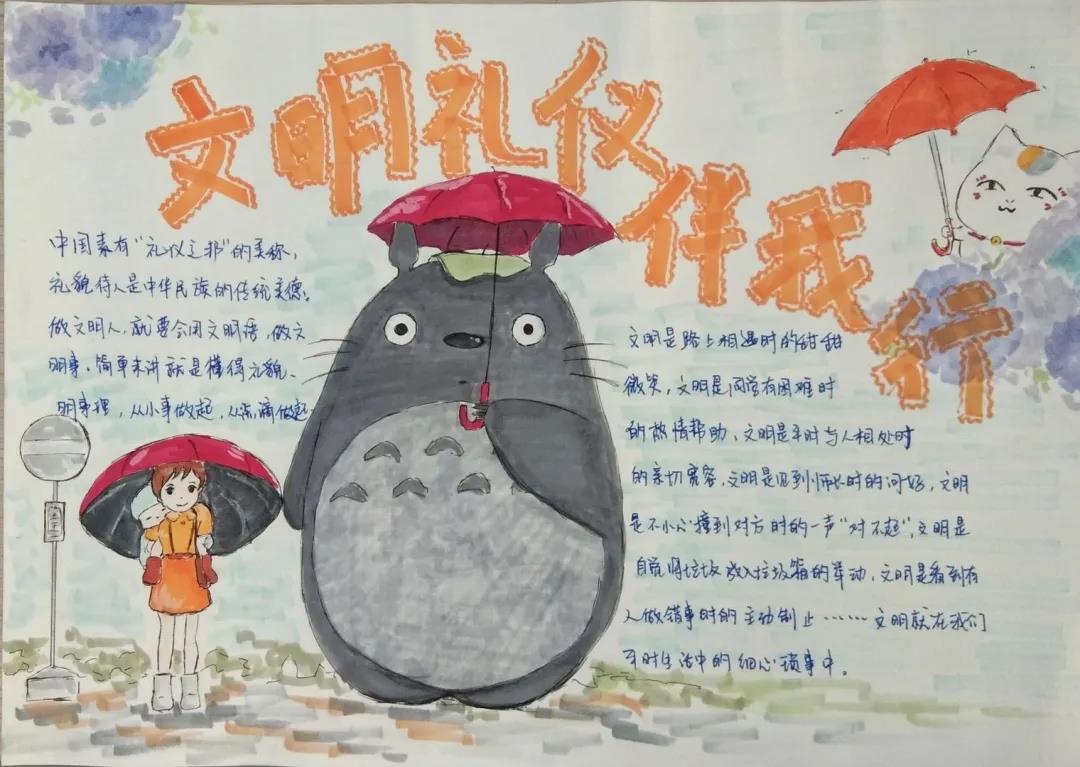 文明礼仪伴我行
中国素有"礼仪之邦"的美称,
礼貌待人是中华民族的传统美德。
做文明人,就要会用文明语,做文
明事、简单来讲就是懂得礼貌、
明事理,从小事做起,从点滴做起
文明是路上相遇时的甜甜
微笑,文明是同学有困难时
的热情帮助、文明是平时与人相处时
的亲切宽容,文明是见到师长时的问好,文明
是不小心撞到对方时的一声"对不起",文明是
自觉将垃圾放入垃圾箱的举动,文明是看到有
人做错事时的主动制止……文明就在我们
平时生活中的细心琐事中。